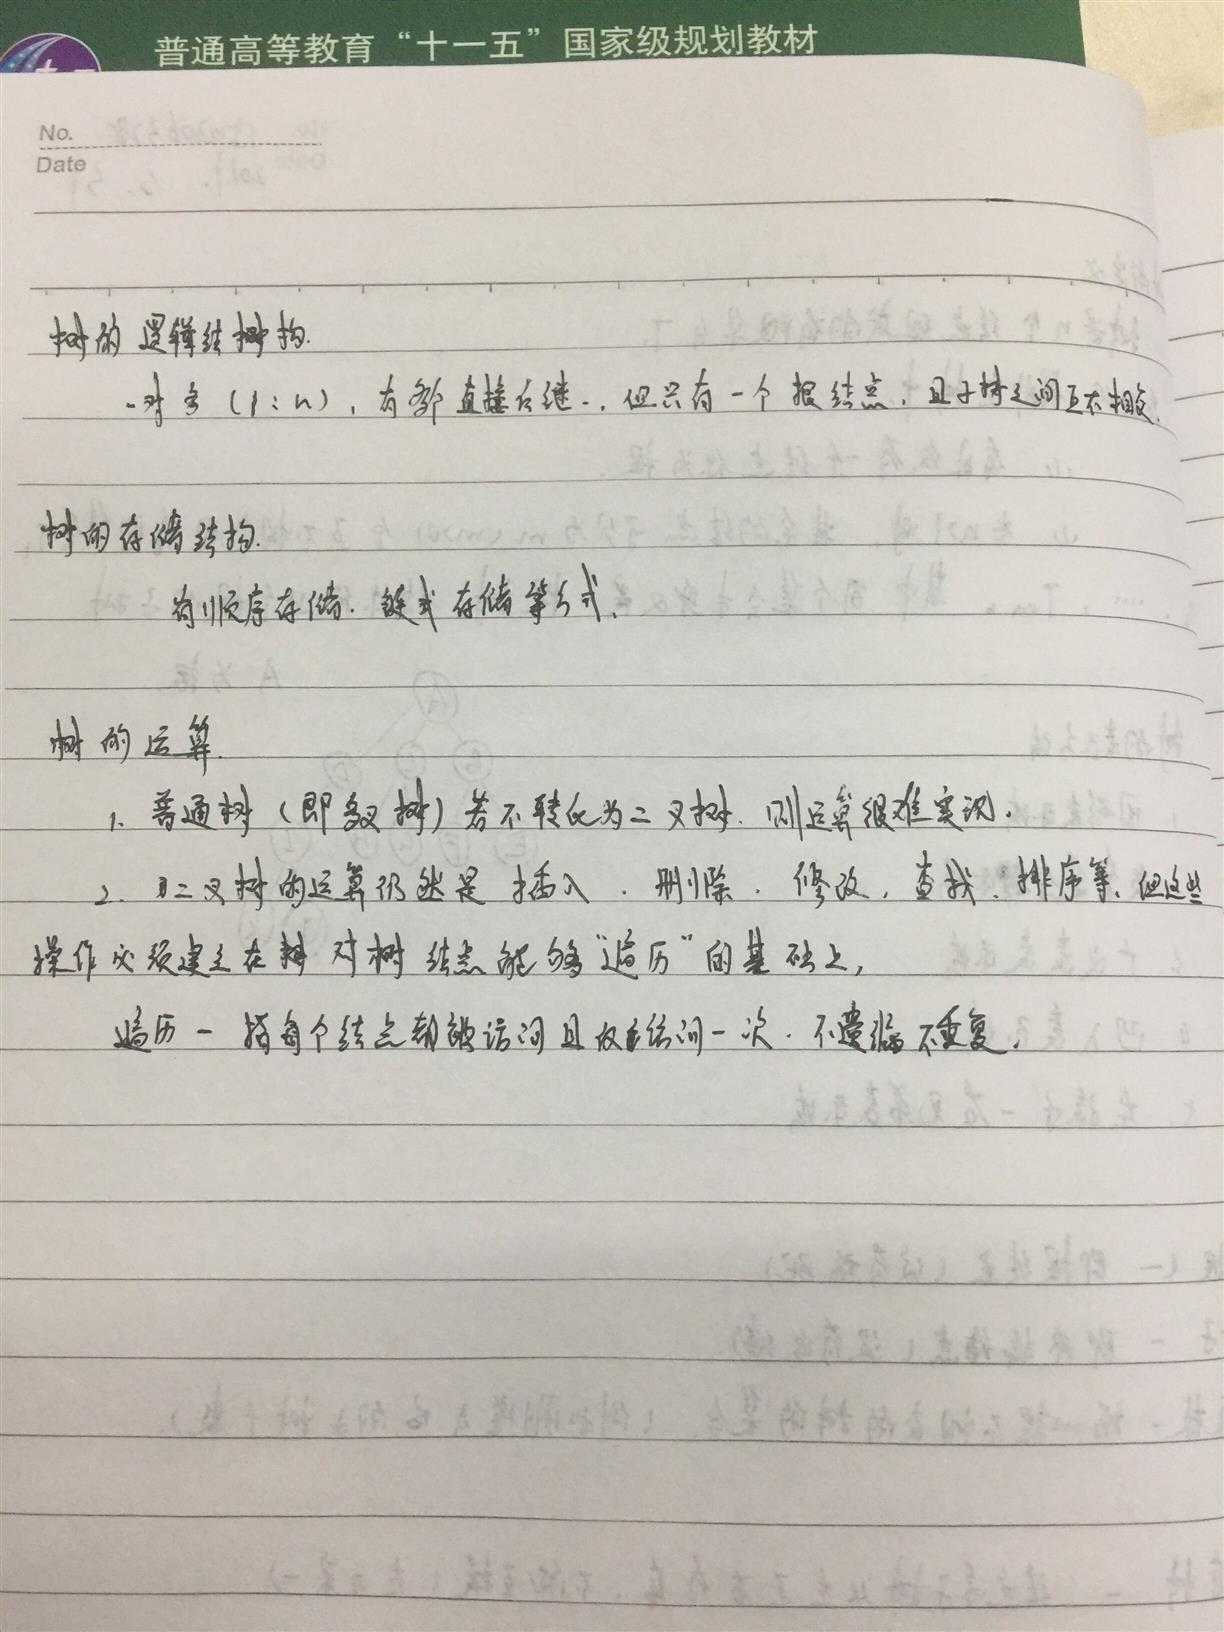 普通高等教育“十一五”国家级规划教材
No.
Date
树的逻辑结构.
一对多（1:n），有多直接后继.，但只有一个根结点，且子树之间互不相交.
树的存储结构.
有顺序存储.链式存储等方式.
树的运算.
1. 普通树（即多叉树）若不转化为二叉树.则运算很难实现.
2. 二叉树的运算仍然是插入.删除.修改，查找.排序等.但这些
操作必须建立在对树结点能够“遍历”的基础上，
遍历一指每个结点都被访问且仅访问一次.不遗漏不重复.